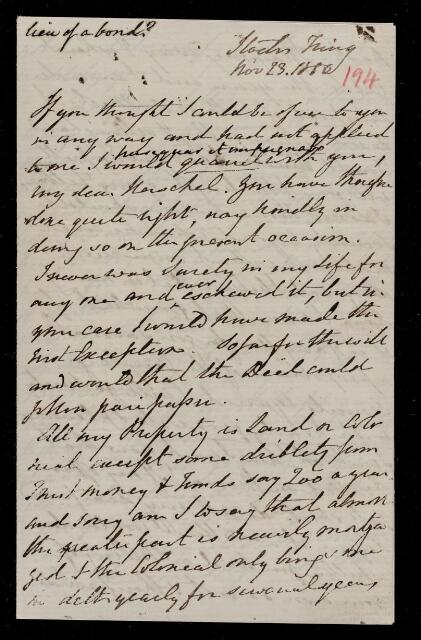 lieu of a bond?
Nov 23. 1850
194
If you thought I could be of use to you
in any way and had not applied
to me I would quarrel with you,
my dear Herschel. You have therefore
done quite right, nay kindly in
doing so on the present occasion.
I never was Surety in my life for
any one and ever eschewed it, but in
your case I would have made the
first Exception. So far for the will
and would that the Deed could
follow pari passu.
All my Property is Land or Colo
nial except some driblets from
Trust money & Funds say 200 a year
and sorry am I to say that almost
the greater part is heavily mortga
ged & the Colonial only brings me
in debt yearly for several years,